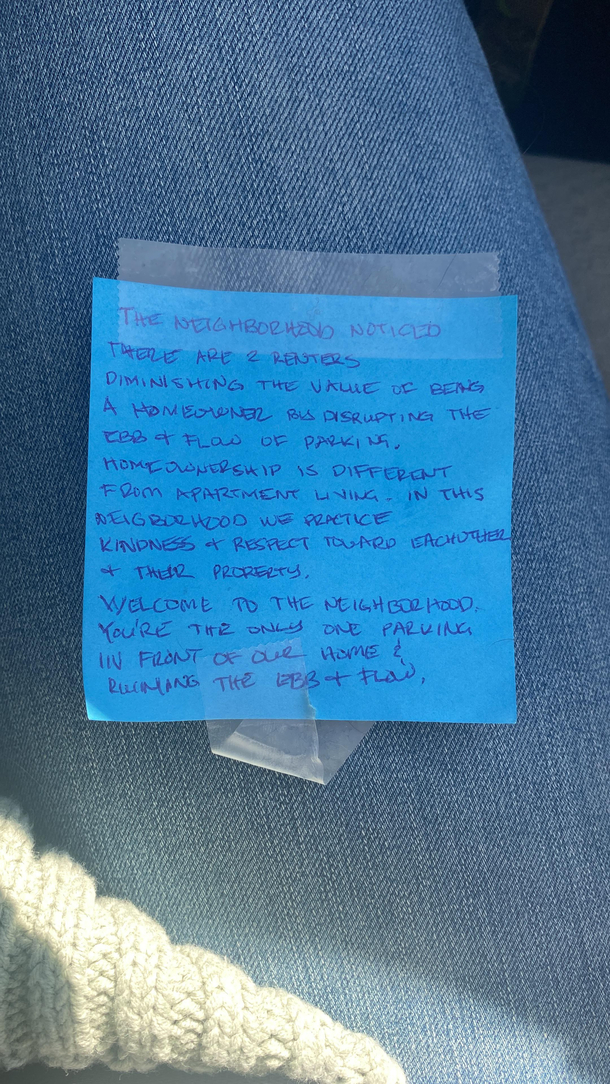 THE NEIGHBORHOOD NOTICED
THERE ARE 2 RENTERS
DIMINISHING THE VALUE OF BEING
A HOMEOWNER BY DISRUPTING THE
EBB & FLOW OF PARKING.
HOMEOWNERSHIP IS DIFFERENT
FROM APARTMENT LIVING. IN THIS
NEIGBORHOOD WE PRACTICE
KINDNESS & RESPECT TOWARD EACHOTHER
& THEIR PROPERTY.
WELCOME TO THE NEIGHBORHOOD.
YOU'RE THE ONLY ONE PARKING
IN FRONT OF OUR HOME &
RUINING THE EBB & FLOW.